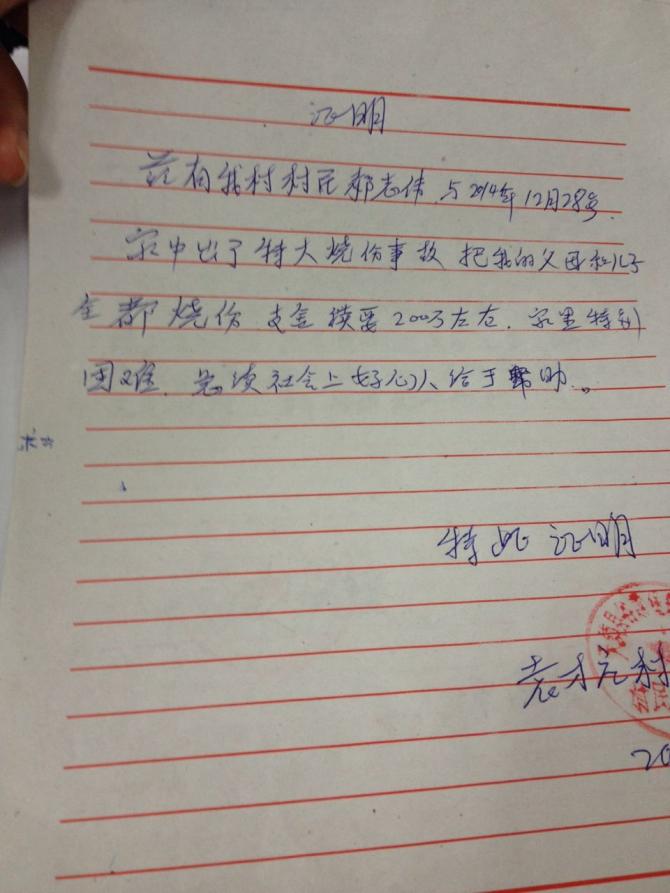 证明
兹有我村村民郝志伟 与2014年12月28号.
家中出了特大烧伤事故 把我的父母和儿子
全都烧伤 支金 需要200万左右. 家里特别
困难. 急须社会上好心人给于帮助。
特此证明
村
20